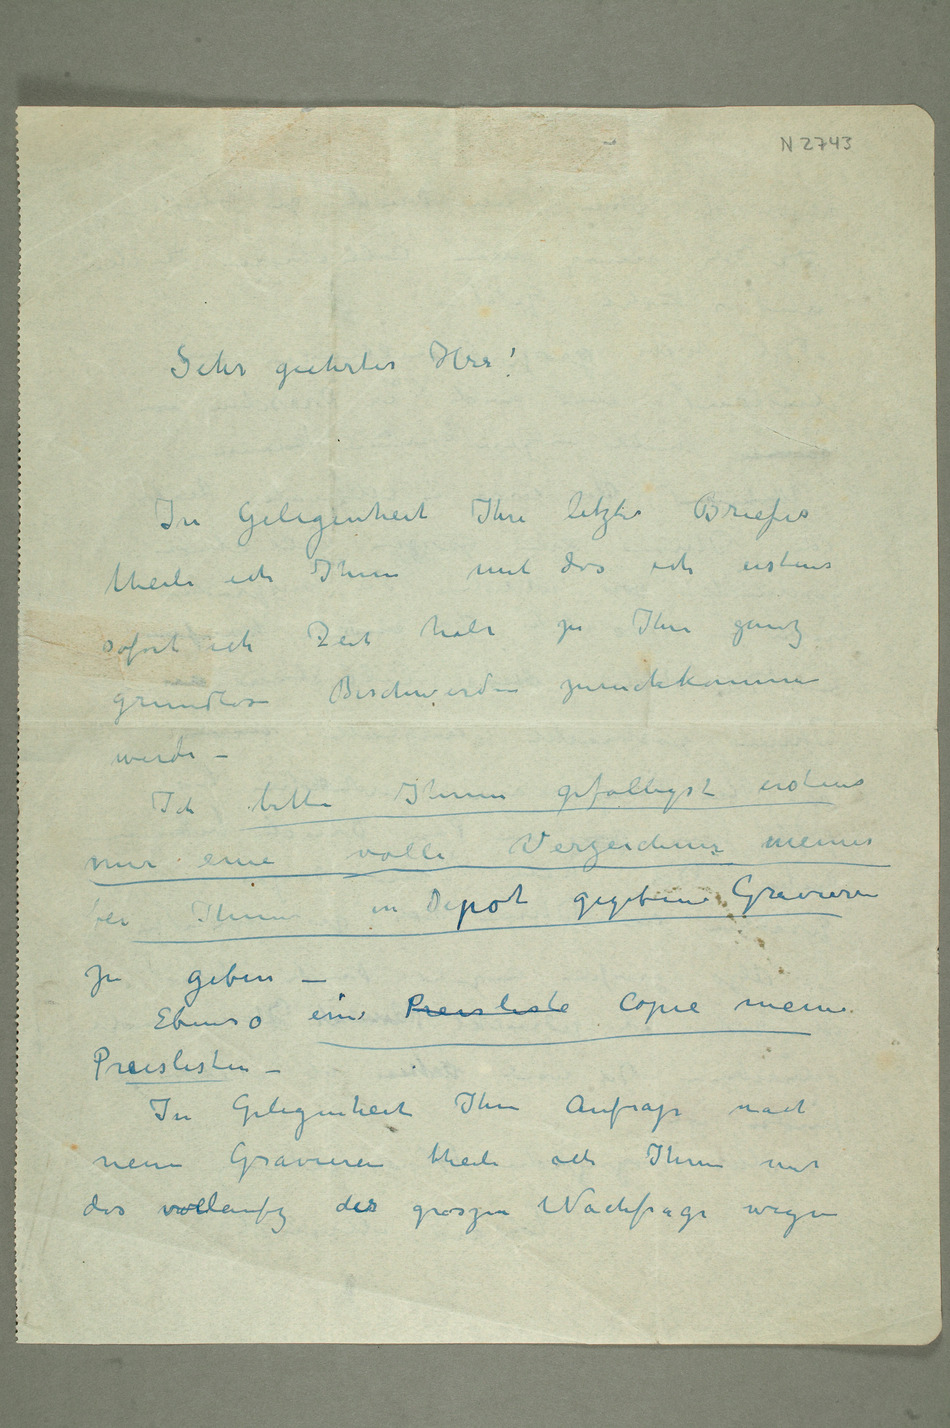 N 2743
Sehr geehrter Herr!
In Gelegenheit Ihre letzte Briefes
theile ich Ihnen mit das ich erstens
sofort ich Zeit habe zu Ihre ganz
grundlose Beschwerden zurückkommen
werde –
Ich bitte Ihnen gefälligst erstens
mir eine volle Verzeichniss meines
bei Ihnen in Depot gegebene Gravieren
zu geben –
Ebenso eine Preisliste Copie meine
Preislisten –
In Gelegenheit Ihre Anfrage nach
neuen Gravieren theile ich Ihnen mit
das vorläufig der groszen Nachfrage wegen